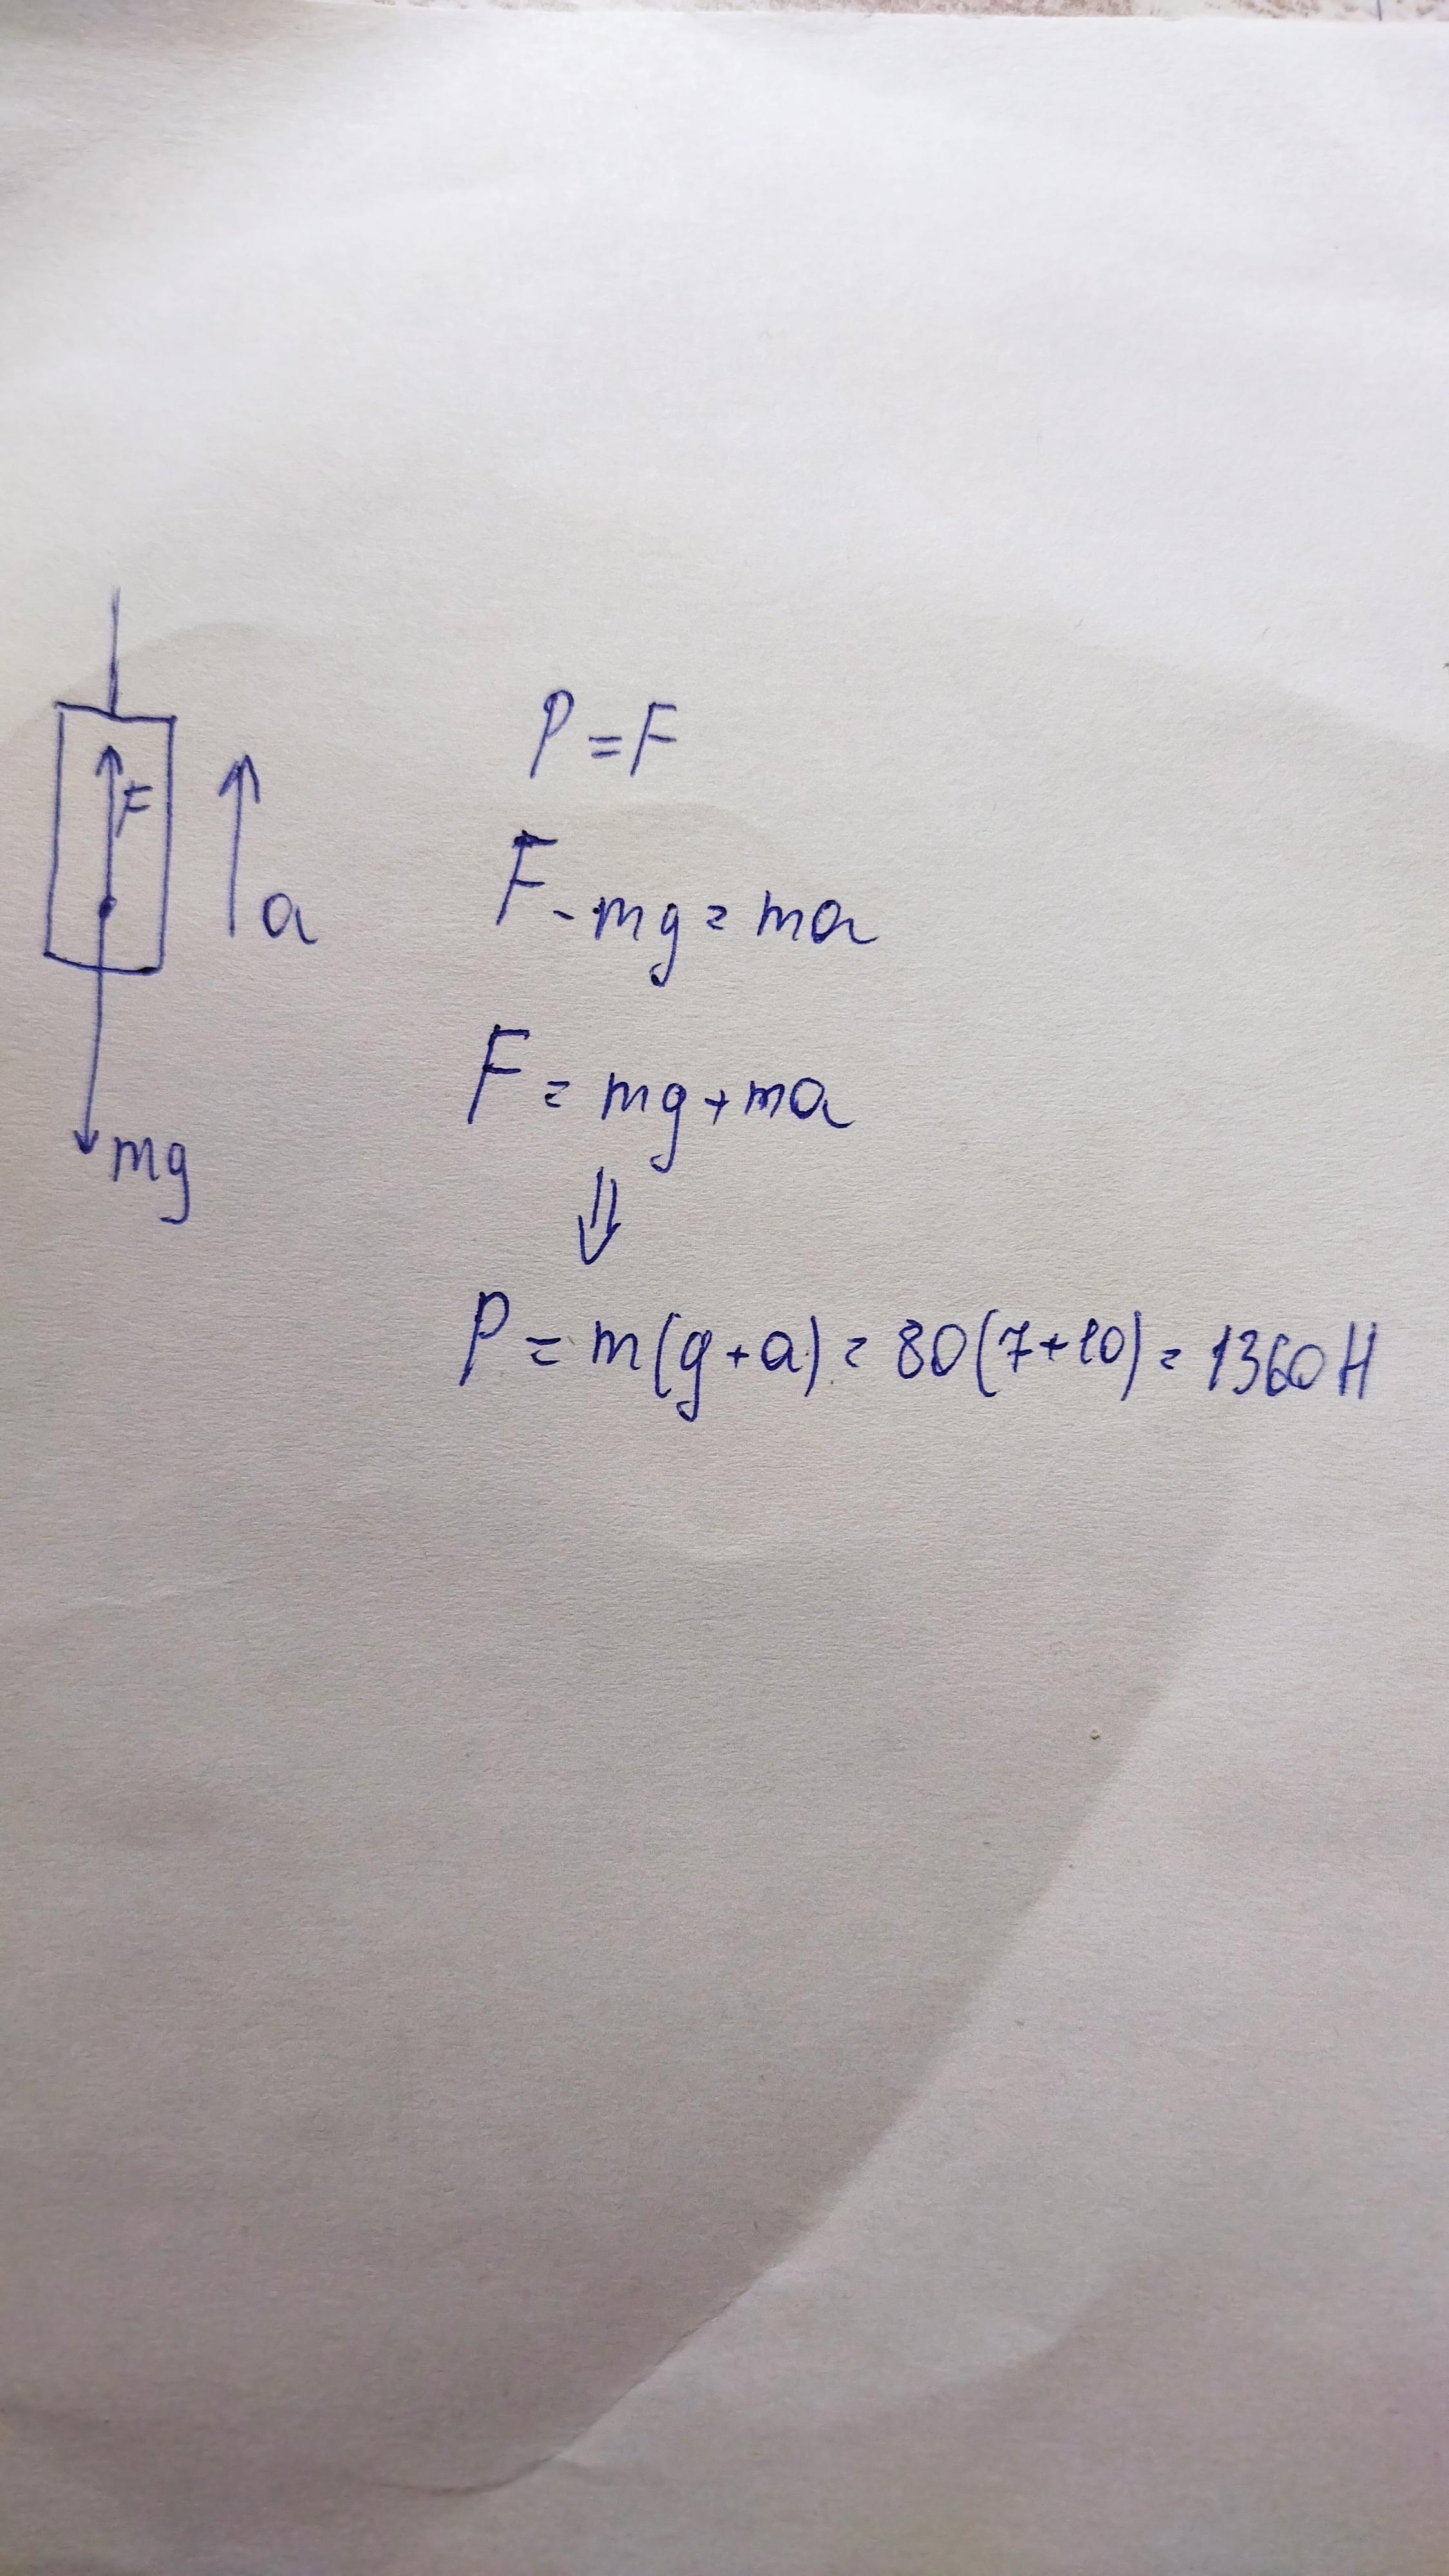 P = F
F
a
F - mg = ma
F = mg + ma
mg
⇓
P = m(g + a) = 80(7+10) = 1360 Н